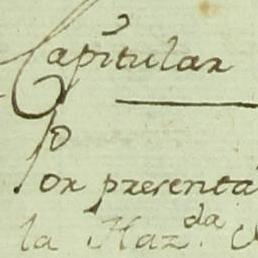 Capitular
Por presenta
la Haz.da